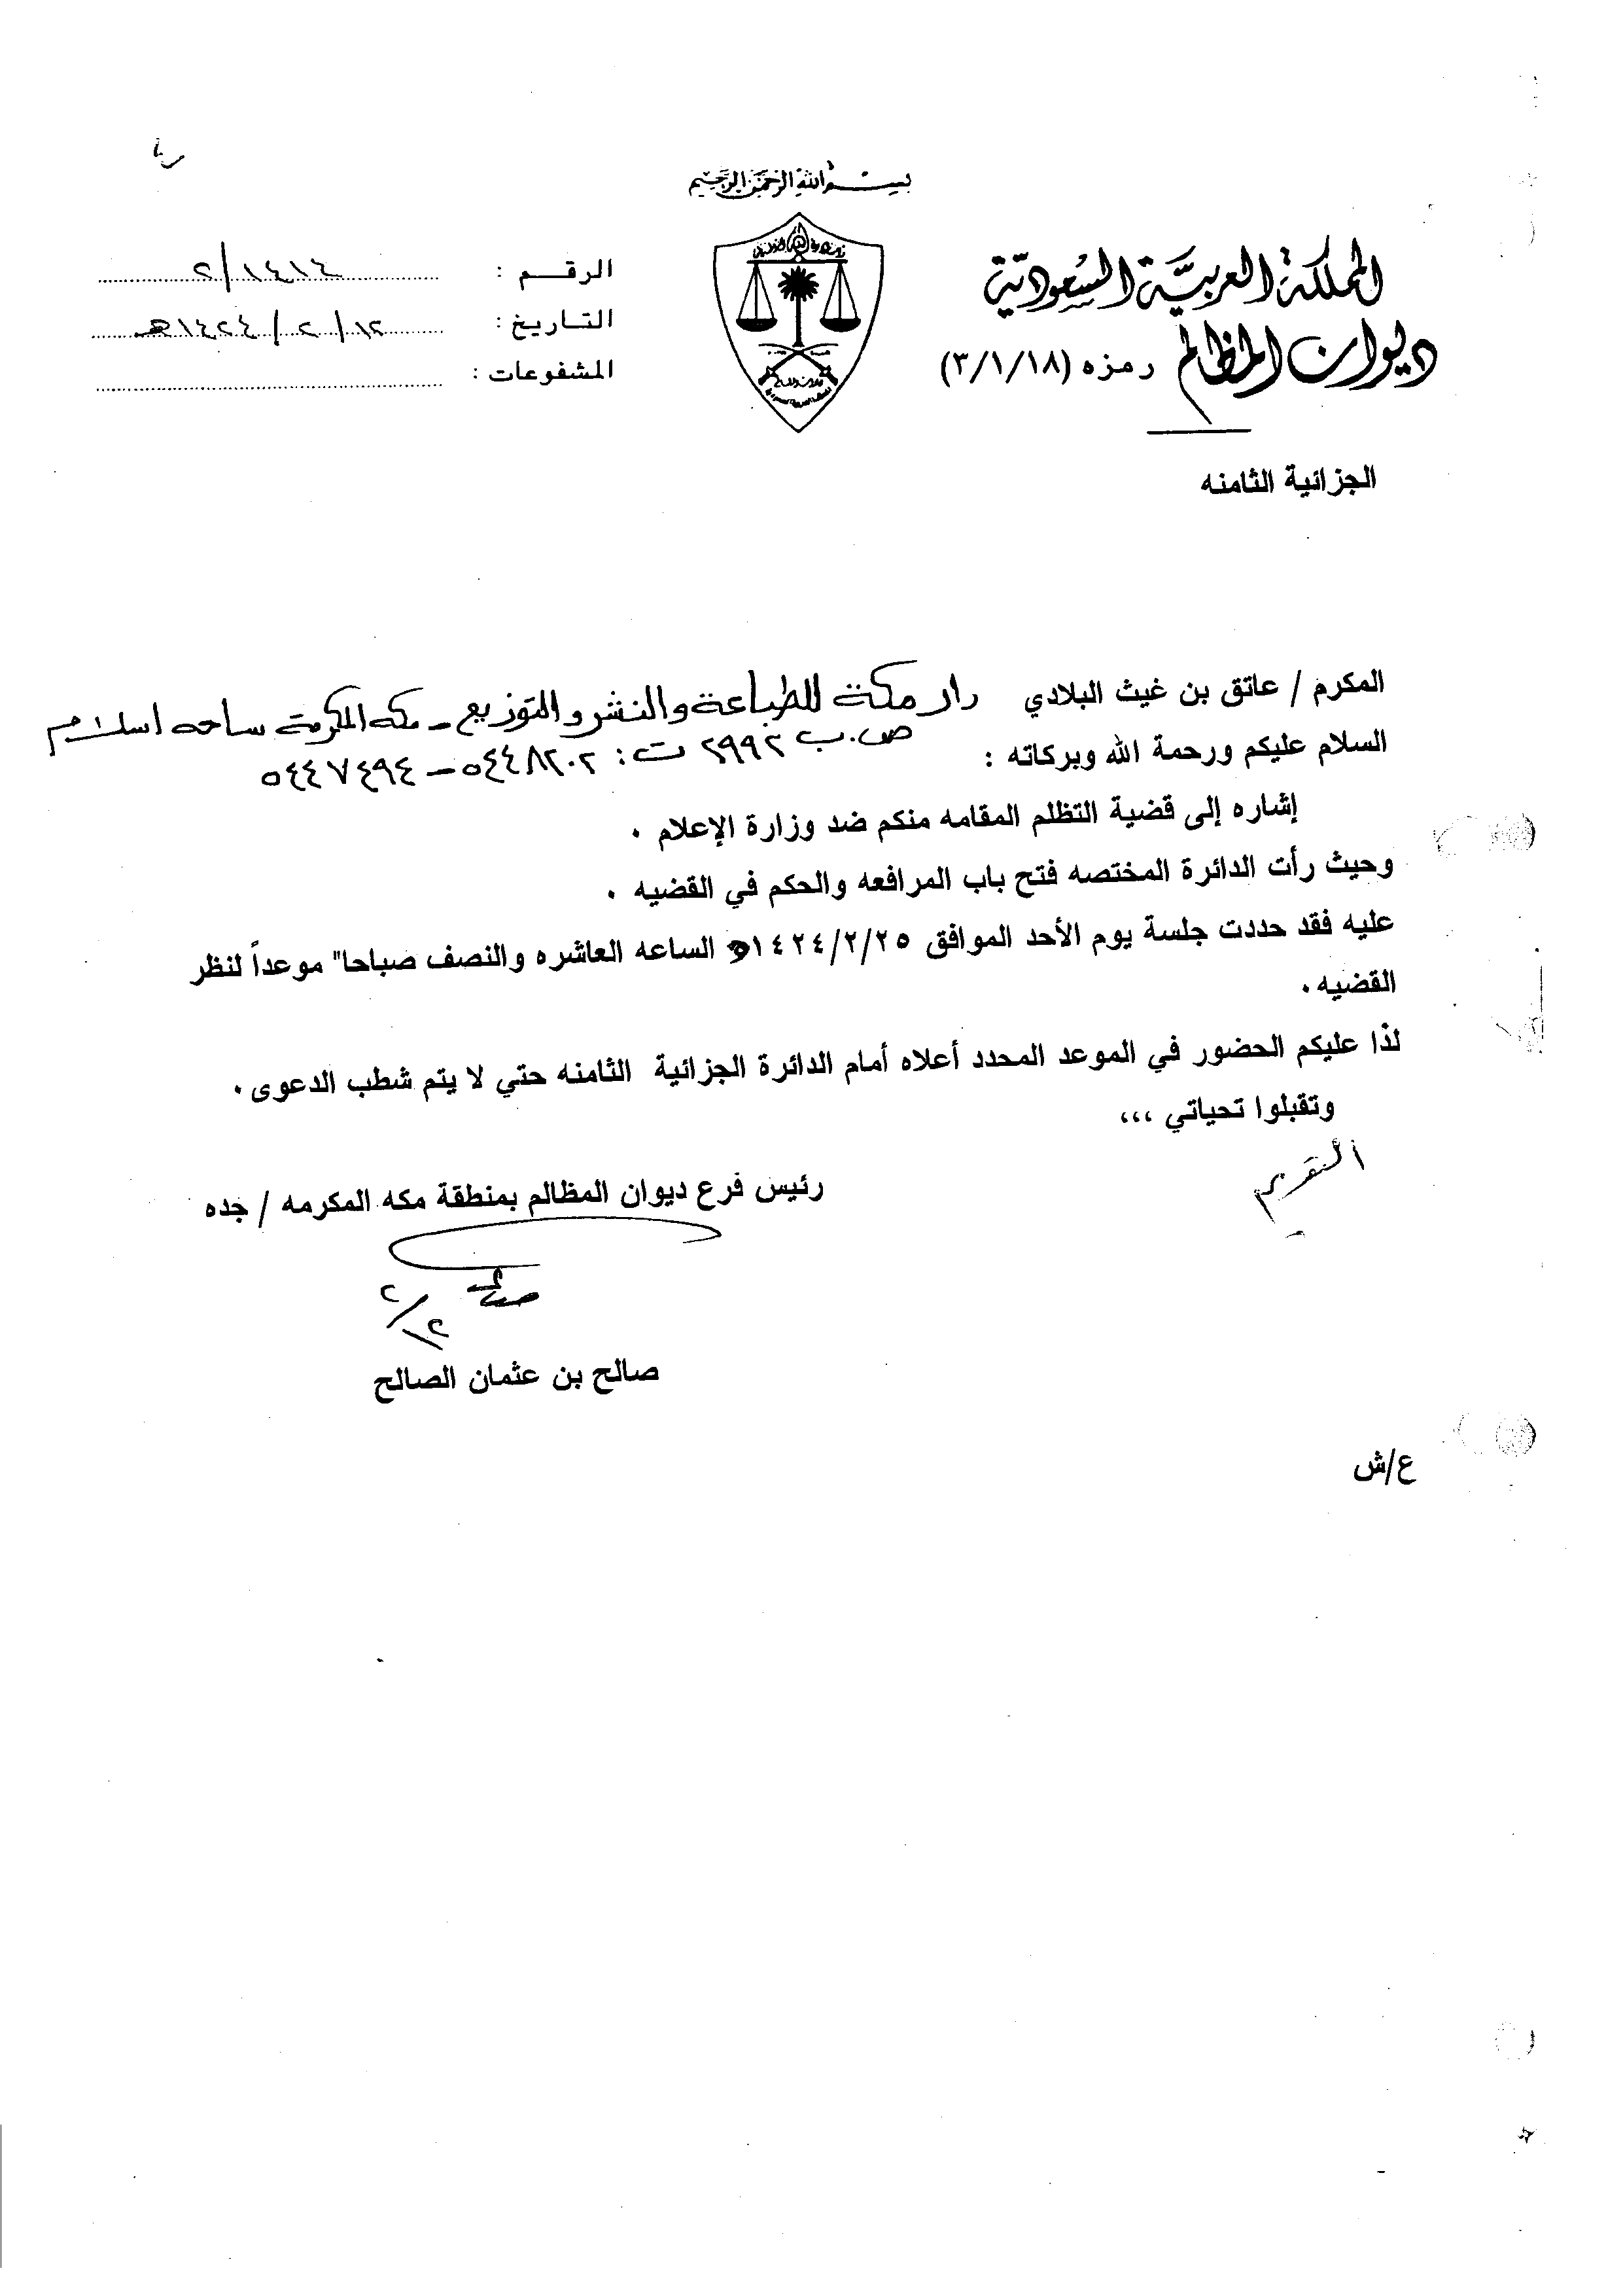 بسم الله الرحمن الرحيم
المملكة العربية السعودية
ديوان المظالم رمزه (٣/١/١٨)
الجزائية الثامنه
الرقم : ٢/١٤١٤
التاريخ : ١٢/ ٢ / ١٤٢٤هـ
المشفوعات :
المكرم / عاتق بن غيث البلادي دار مكة للطباعة والنشر والتوزيع - مكه المكرمة ساحه اسلام
ص.ب ٢٩٩٢ ت: ٥٤٤٨٢٠٢ - ٥٤٤٧٤٩٤
السلام عليكم ورحمة الله وبركاته :
إشاره إلى قضية التظلم المقامه منكم ضد وزارة الإعلام .
وحيث رأت الدائرة المختصه فتح باب المرافعه والحكم في القضيه .
عليه فقد حددت جلسة يوم الأحد الموافق ١٤٢٤/٢/٢٥ه الساعه العاشره والنصف صباحا" موعداً لنظر
القضيه .
لذا عليكم الحضور في الموعد المحدد أعلاه أمام الدائرة الجزائية الثامنه حتي لا يتم شطب الدعوى .
وتقبلوا تحياتي ،،،
رئيس فرع ديوان المظالم بمنطقة مكه المكرمه / جده
٢/١٢
صالح بن عثمان الصالح
ع/ش